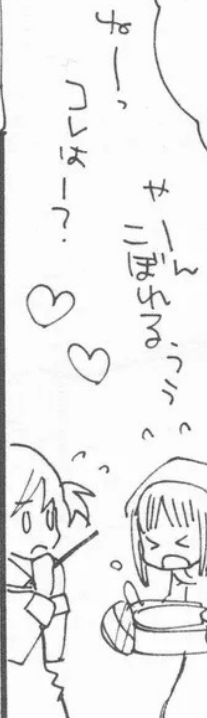 やーん
こぼれるぅぅ
ねーっ
コレはー?